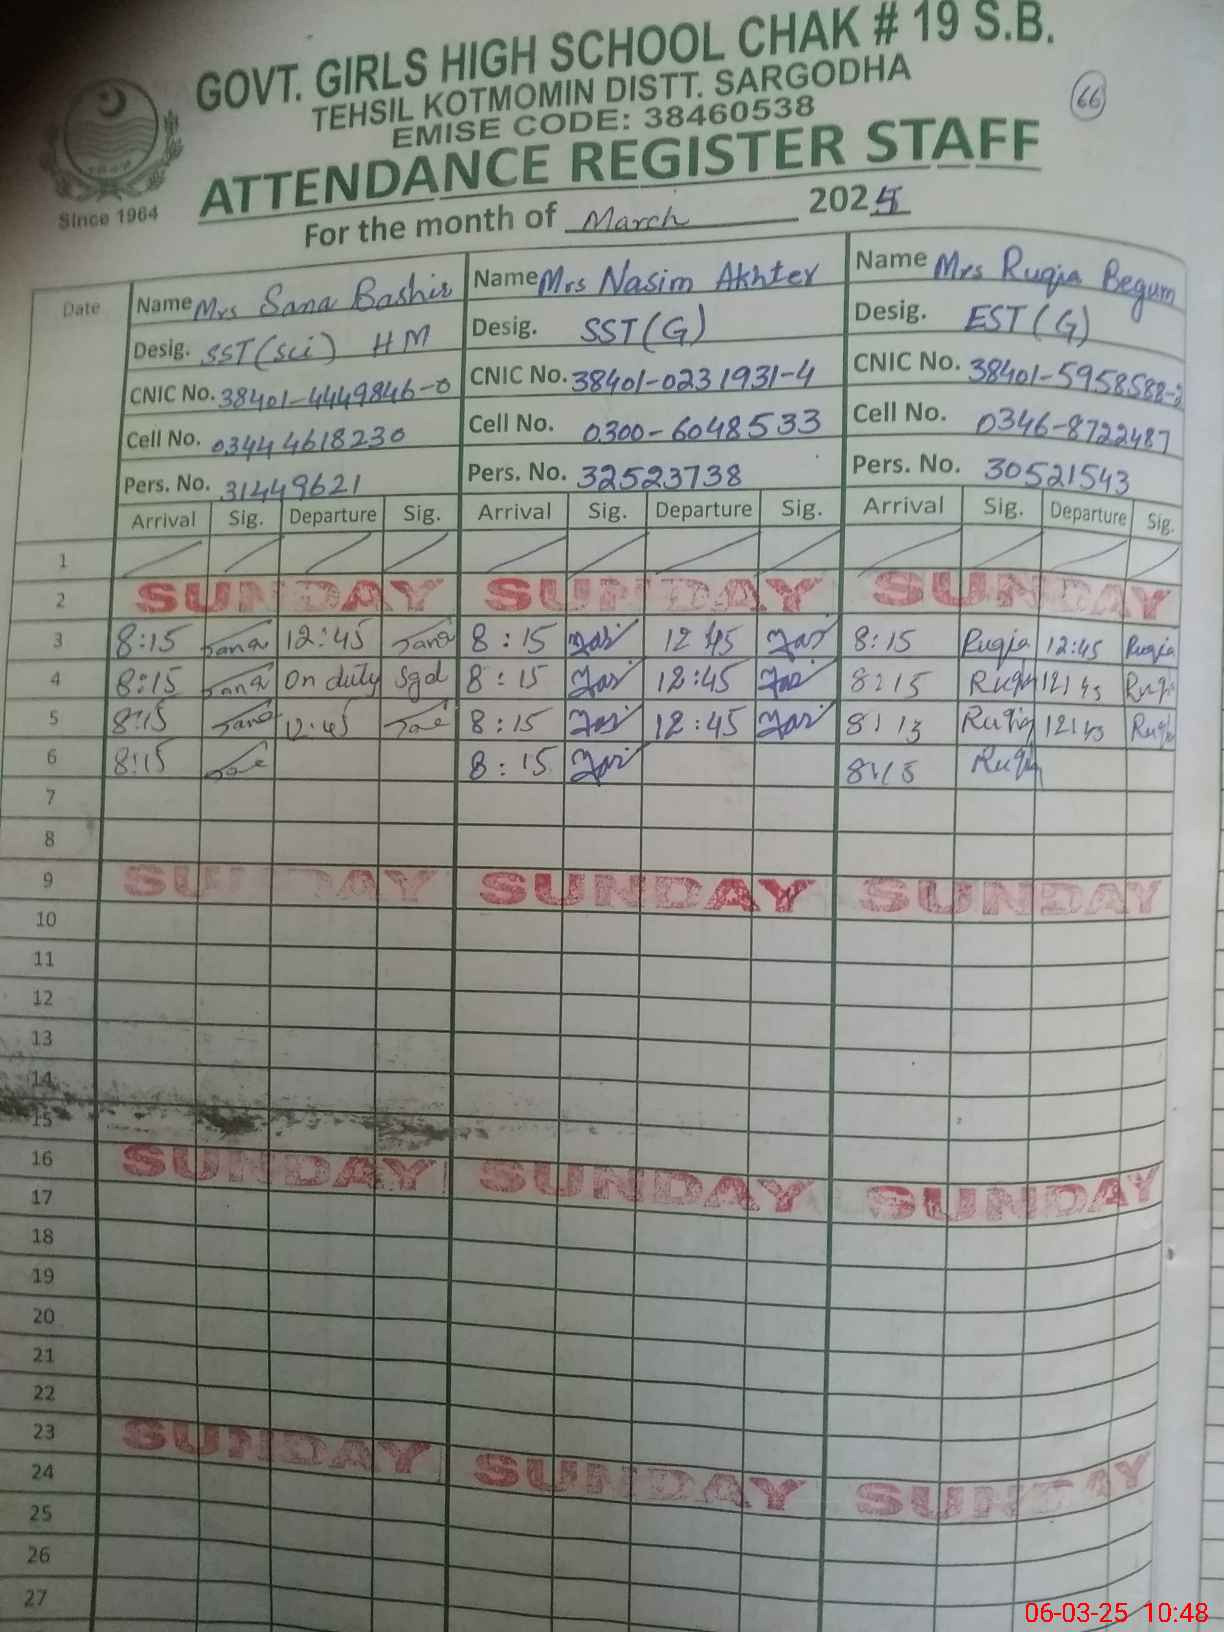 GOVT. GIRLS HIGH SCHOOL CHAK # 19 S.B.
TEHSIL KOTMOMIN DISTT. SARGODHA
66
EMISE CODE: 38460538
ATTENDANCE REGISTER STAFF
Since 1964
For the month of March 2025
Date Name Mrs Sana Bashir Name Mrs Nasim Akhter Name Mrs Ruqia Begum
Desig. SST(Sci) HM Desig. SST(G) Desig. EST(G)
CNIC No. 38401-4449846-0 CNIC No. 38401-0231931-4 CNIC No. 38401-5958588-
Cell No. 03444618230 Cell No. 0300-6048533 Cell No. 0346-8722487
Pers. No. 31449621 Pers. No. 32523738 Pers. No. 30521543
Arrival Sig. Departure Sig. Arrival Sig. Departure Sig. Arrival Sig. Departure Sig.
1
2 SUNDAY SUNDAY SUNDAY
3 8:15 Sana 12:45 Sana 8:15 12:45 8:15 Ruqia 12:45 Ruqia
4 8:15 Sana On duty Sgd 8:15 12:45 8:15 Ruqia 12:45 Ruqia
5 8:15 Sana 12:45 8:15 12:45 Ruqia 12:45 Ruqia
6 8:15 8:15 8:15 Ruqia
7
8
9 SUNDAY SUNDAY SUNDAY
10
11
12
13
14
15
16 SUNDAY SUNDAY SUNDAY
17
18
19
20
21
22
23 SUNDAY SUNDAY SUNDAY
24
25
26
27
06-03-25 10:48